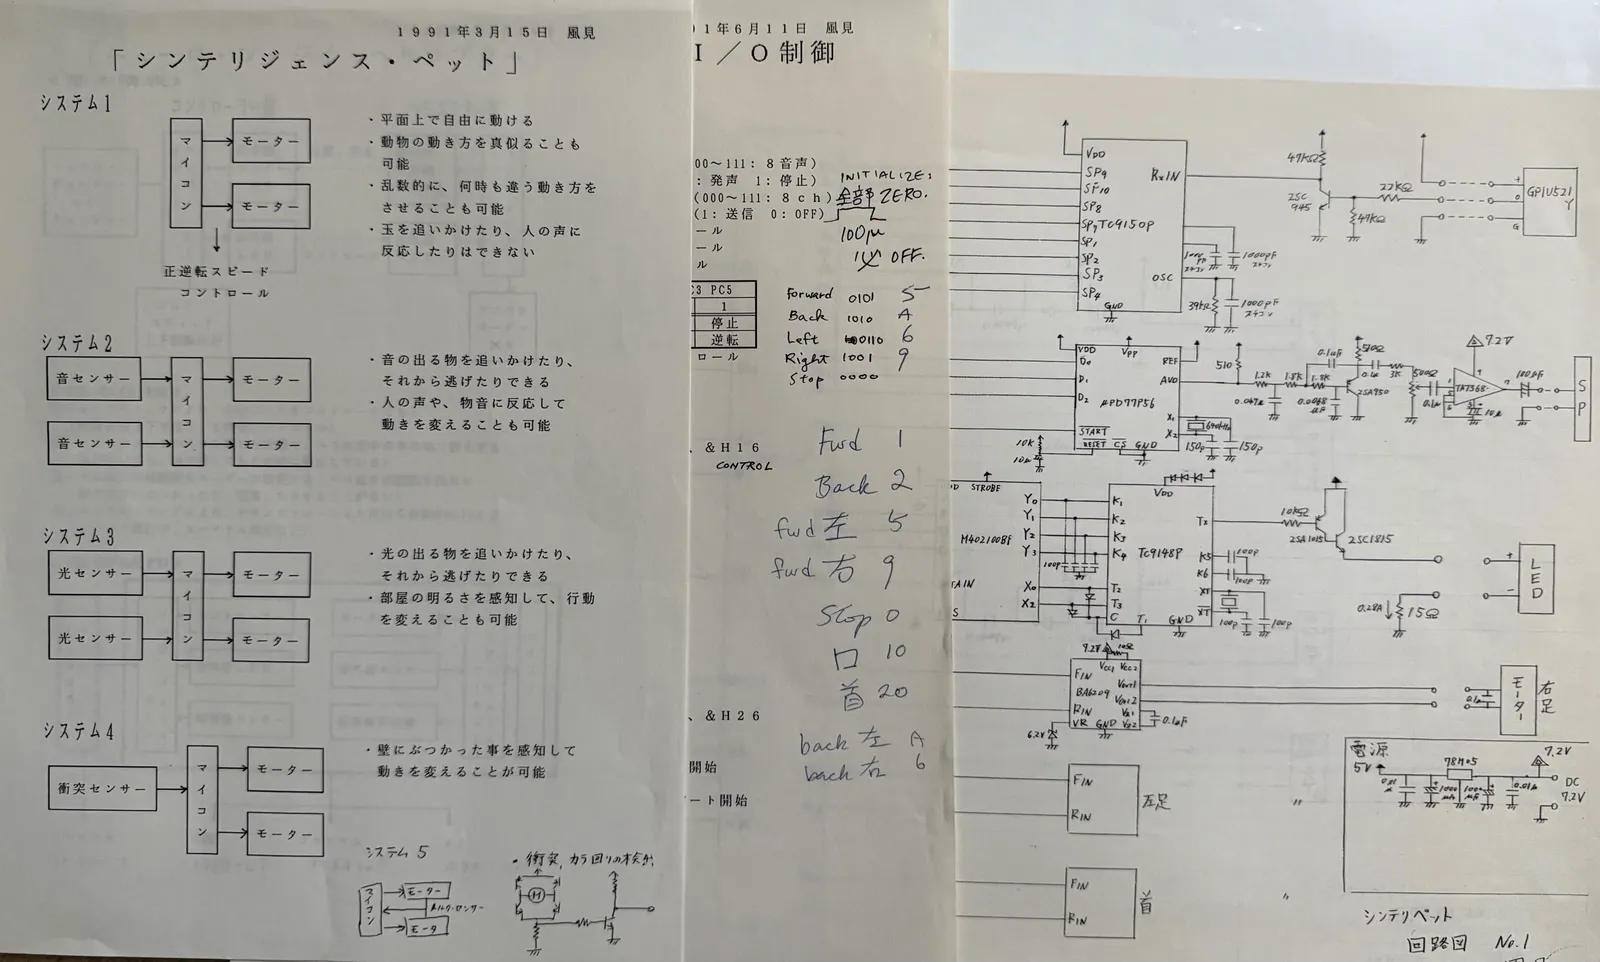 1991年3月15日 風見
「シンテリジェンス・ペット」
システム1
マイコン
モーター
モーター
正逆転スピード
コントロール
・平面上で自由に動ける
・動物の動き方を真似ることも
可能
・乱数的に、何時も違う動き方を
させることも可能
・玉を追いかけたり、人の声に
反応したりはできない
システム2
音センサー
音センサー
マイコン
モーター
モーター
・音の出る物を追いかけたり、
それから逃げたりできる
・人の声や、物音に反応して
動きを変えることも可能
システム3
光センサー
光センサー
マイコン
モーター
モーター
・光の出る物を追いかけたり、
それから逃げたりできる
・部屋の明るさを感知して、行動
を変えることも可能
システム4
衝突センサー
マイコン
モーター
モーター
・壁にぶつかった事を感知して
動きを変えることが可能
システム5
マイコン
モーター
モータ
・衝突、カラ回りの検出
M
91年6月11日 風見
I/O制御
00～111：8音声)
：発声 1：停止)
(000～111：8ch)
(1：送信 0：OFF)
ール
ール
ル
INITIALIZE:
全部ZERO.
100μ
OFF.
C3 PC5
1
停止
逆転
ロール
Forward 0101 5
Back 1010 A
Left 0110 6
Right 1001 9
Stop 0000
、&H16
CONTROL
Fwd 1
Back 2
fwd 左 5
fwd 右 9
Stop 0
口 10
首 20
、&H26
back 左 A
back 右 6
開始
ート開始
VDD
SP9
SP10
SP8
SP7
SP1
SP2
SP3
SP4
GND
TC9150P
RxIN
OSC
1000pF
39kΩ
1000pF
47kΩ
2SC
945
22kΩ
47kΩ
+
O
G
GP1U521Y
VDD
D0
D1
D2
START
RESET CS GND
VPP
REF
AVO
μPD77P56
X1
X2
640kHz
150p
150p
10K
10μ
510
1.2K
1.8K
1.8K
0.047μ
0.0068
μF
0.1μF
510Ω
2SA950
0.1μ
3K
500Ω
0.1μ
7.2V
TA7368
10μ
100μF
SP
STROBE
M402100BF
Y0
Y1
Y2
Y3
X0
X2
100p
VDD
K1
K2
K3
K4
T2
T3
C
T1
GND
TC9148P
Tx
K5
K6
XT
XT
100p
100p
100p
100p
10kΩ
2SA1015
2SC1815
0.28A
15Ω
+
-
LED
7.2V
10Ω
VCC1 VCC2
FIN
BA6209
RIN
VR GND
VOUT1
VOUT2
VZ1
VZ2
0.1μF
6.2V
0.1μ
モーター
右足
FIN
RIN
左足
〃
FIN
RIN
首
〃
電源
5V
78M05
7.2V
0.01μ
DC
7.2V
シンテリペット
回路図 No.1